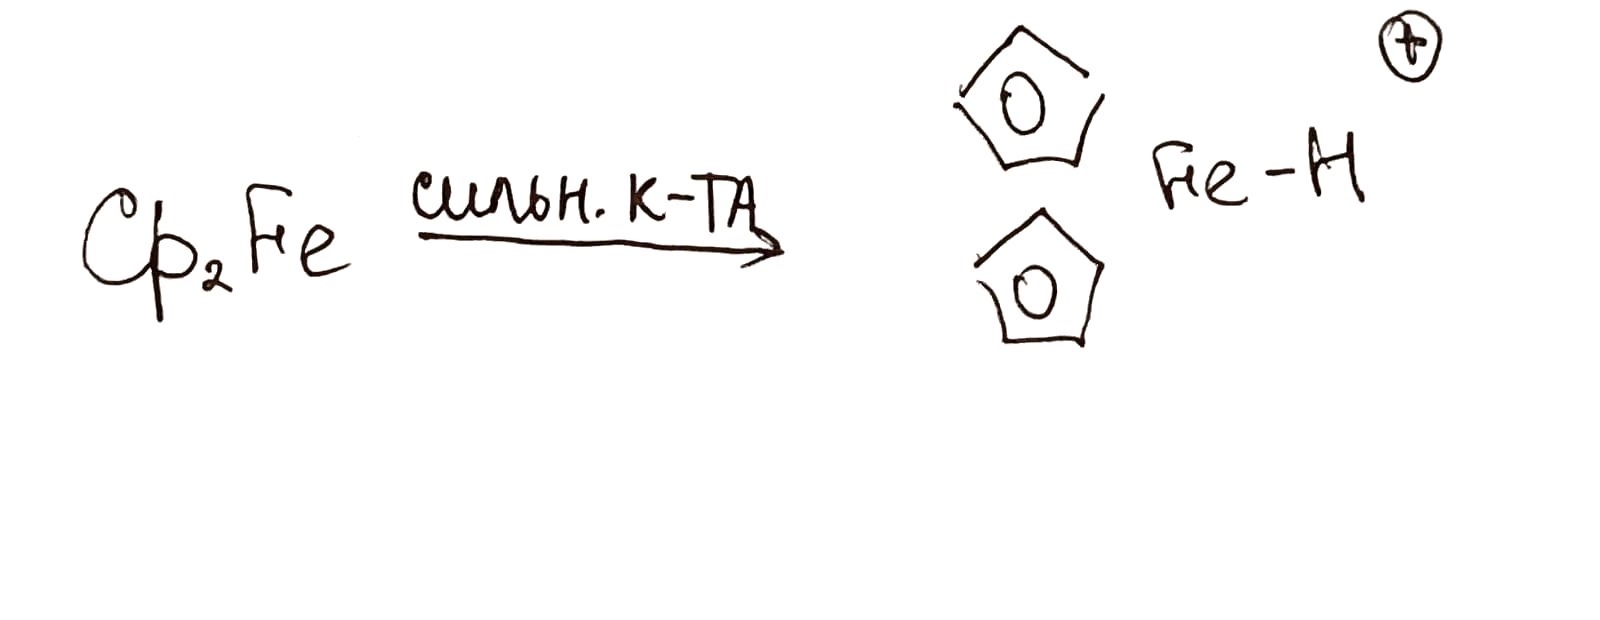 Cp₂Fe сильн. к-та Fe-H +